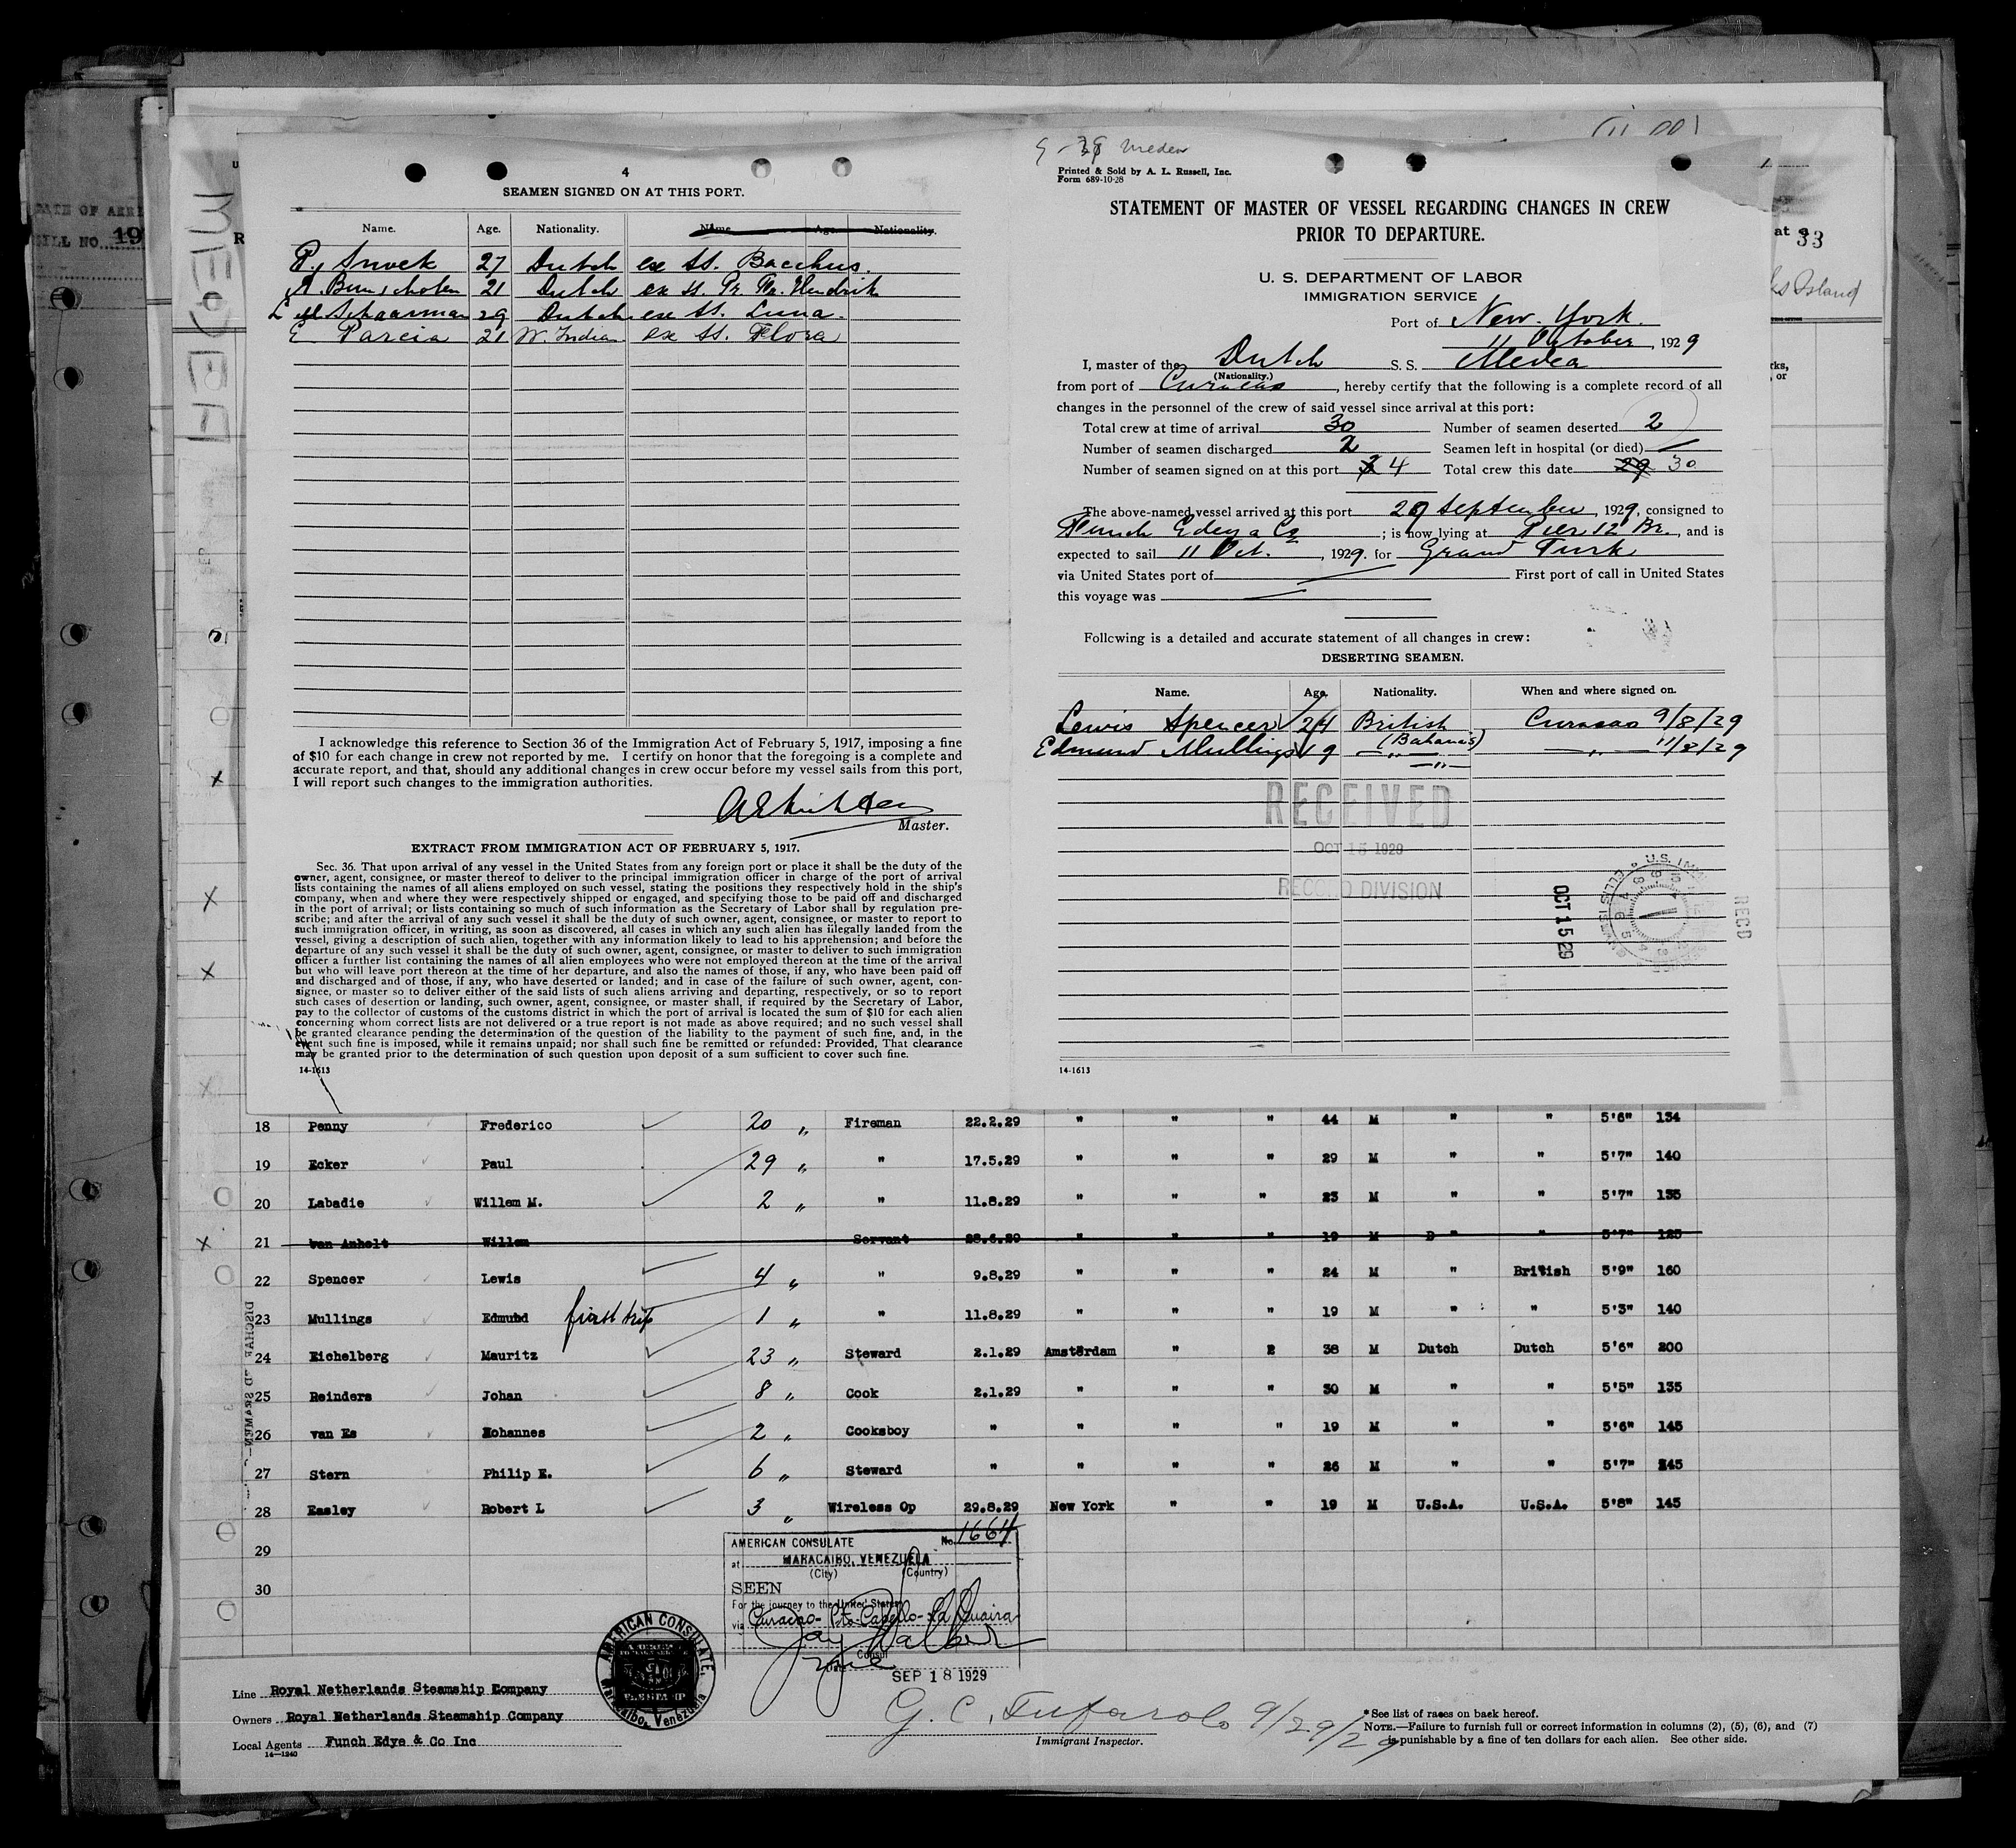 4
SEAMEN SIGNED ON AT THIS PORT.
Name. Age. Nationality. Name. Age. Nationality.
P. Snoek 27 Dutch ex ss. Bacchus.
A. Bunschoten 21 Dutch ex ss. Pr. Fr. Hendrik
Schaarman 29 Dutch ex ss. Luna.
E Parcia 21 W. Indian ex ss. Flora
I acknowledge this reference to Section 36 of the Immigration Act of February 5, 1917, imposing a fine
of $10 for each change in crew not reported by me. I certify on honor that the foregoing is a complete and
accurate report, and that, should any additional changes in crew occur before my vessel sails from this port,
I will report such changes to the immigration authorities.
Master.
EXTRACT FROM IMMIGRATION ACT OF FEBRUARY 5, 1917.
Sec. 36. That upon arrival of any vessel in the United States from any foreign port or place it shall be the duty of the
owner, agent, consignee, or master thereof to deliver to the principal immigration officer in charge of the port of arrival
lists containing the names of all aliens employed on such vessel, stating the positions they respectively hold in the ship's
company, when and where they were respectively shipped or engaged, and specifying those to be paid off and discharged
in the port of arrival; or lists containing so much of such information as the Secretary of Labor shall by regulation pre-
scribe; and after the arrival of any such vessel it shall be the duty of such owner, agent, consignee, or master to report to
such immigration officer, in writing, as soon as discovered, all cases in which any such alien has illegally landed from the
vessel, giving a description of such alien, together with any information likely to lead to his apprehension; and before the
departure of any such vessel it shall be the duty of such owner, agent, consignee, or master to deliver to such immigration
officer a further list containing the names of all alien employees who were not employed thereon at the time of the arrival
but who will leave port thereon at the time of her departure, and also the names of those, if any, who have been paid off
and discharged and of those, if any, who have deserted or landed; and in case of the failure of such owner, agent, con-
signee, or master so to deliver either of the said lists of such aliens arriving and departing, respectively, or so to report
such cases of desertion or landing, such owner, agent, consignee, or master shall, if required by the Secretary of Labor,
pay to the collector of customs of the customs district in which the port of arrival is located the sum of $10 for each alien
concerning whom correct lists are not delivered or a true report is not made as above required; and no such vessel shall
be granted clearance pending the determination of the question of the liability to the payment of such fine, and, in the
event such fine is imposed, while it remains unpaid; nor shall such fine be remitted or refunded: Provided, That clearance
may be granted prior to the determination of such question upon deposit of a sum sufficient to cover such fine.
14-1613
Medea
Printed & Sold by A. L. Russell, Inc.
Form 689-10-28
STATEMENT OF MASTER OF VESSEL REGARDING CHANGES IN CREW
PRIOR TO DEPARTURE.
U. S. DEPARTMENT OF LABOR
IMMIGRATION SERVICE
Port of New-York.
11 October, 1929
I, master of the Dutch S. S. Medea
(Nationality.)
from port of Curacao, hereby certify that the following is a complete record of all
changes in the personnel of the crew of said vessel since arrival at this port:
Total crew at time of arrival 30 Number of seamen deserted 2
Number of seamen discharged 2 Seamen left in hospital (or died)
Number of seamen signed on at this port 4 Total crew this date 29 30
The above-named vessel arrived at this port 29 September, 1929, consigned to
Funch Edey a Co; is now lying at Pier 12 Br., and is
expected to sail 11 Oct., 1929. for Grand Turk
via United States port of First port of call in United States
this voyage was
Following is a detailed and accurate statement of all changes in crew:
DESERTING SEAMEN.
Name. Age. Nationality. When and where signed on.
Lewis Spencer 24 British Curacao 9/8/29
(Bahamas)
Edmund Mullings 19 " " 11/8/29
"
RECEIVED
OCT 15 1929
RECORD DIVISION
OCT 15 29
REC'D
14-1613
DATE OF
19
at
33
Island
MEDEA
18 Penny Frederico 20 " Fireman 22.2.29 " " " 44 M " " 5'6" 134
19 Ecker Paul 29 " " 17.5.29 " " " 29 M " " 5'7" 140
20 Labadie Willem M. 2 " " 11.8.29 " " " 23 M " " 5'7" 135
21 van Anholt Willem Servant 28.6.29 " " " 19 M D " " 5'7" 125
22 Spencer Lewis 4 " " 9.8.29 " " " 24 M " British 5'9" 160
23 Mullings Edmund first trip 1 " " 11.8.29 " " " 19 M " " 5'3" 140
24 Eichelberg Mauritz 23 " Steward 2.1.29 Amsterdam " " 38 M Dutch Dutch 5'6" 200
25 Reinders Johan 8 " Cook 2.1.29 " " " 30 M " " 5'5" 135
26 van Es Johannes 2 " Cooksboy " " " " 19 M " " 5'6" 145
27 Stern Philip E. 6 " Steward " " " " 26 M " " 5'7" 145
28 Easley Robert L 3 " Wireless Op 29.8.29 New York " " 19 M U.S.A. U.S.A. 5'8" 145
29
30
AMERICAN CONSULATE No. 1664
at MARACAIBO, VENEZUELA
(City) (Country)
SEEN
For the journey to the United States
via Curacao-Pto-Cabello-La Guaira
Consul
SEP 18 1929
AMERICAN CONSULATE, Maracaibo, Venezuela
Line Royal Netherlands Steamship Company
Owners Royal Netherlands Steamship Company
Local Agents Funch Edye & Co Inc
14—1240
G. C. Tufarolo 9/29/29
Immigrant Inspector.
* See list of races on back hereof.
NOTE.—Failure to furnish full or correct information in columns (2), (5), (6), and (7)
is punishable by a fine of ten dollars for each alien. See other side.